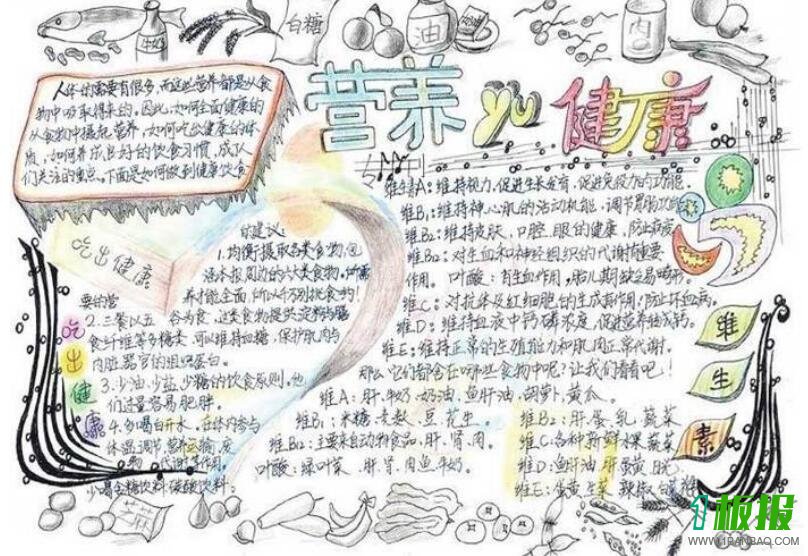 白糖
油
奶油
肉
营养 yu 健康
人体的需要有很多,而这些营养都是从食
物中吸取得来的。因此,如何全面健康的
从食物中摄起营养,如何吃出健康的体
质,如何养成良好的饮食习惯,成了人
们关注的重点。下面是如何做到健康饮食
的建议:
吃出健康
1.均衡摄取各类食物,包
涵本报周边的六大类食物,
养才能全面,所以千万别挑食哟!
要的营
2.三餐以五谷为食,这类食物提供淀粉与膳
食纤维等多糖类,可以维持血糖,保护肌肉与
内脏器官的组织蛋白。
3.少油、少盐、少糖的饮食原则。他
们过量容易肥胖。
4.多喝白开水,在体内参与
体温调节、营养运输、废
物代谢等作用。
少喝含糖饮料、碳酸饮料。
吃出健康
维生素A:维持视力,促进生长发育,促进免疫力的功能。
维B₁:维持神心肌的活动机能,调节胃肠功能
维B₂:维持皮肤,口腔,眼的健康,防止
维B₁₂:对生血和神经组织的代谢有重要
作用。叶酸:有生血作用,胎儿期缺乏易畸形。
维C:对抗体及红细胞的生成有作用,防止坏血病。
维D:维持血液中钙、磷浓度,促进营养合成钙。
维E:维持正常的生殖能力和肌肉正常代谢。
那么它们都含在哪些食物中呢?让我们看看吧!
维A:肝、牛奶、奶油、鱼肝油、胡萝卜、黄瓜。
维B₁:米糠、麦麸、豆、花生。
维B₂:肝、蛋、乳、蔬菜
维B₁₂:主要来自动物食品,肝、肾、肉。
维C:各种新鲜水果、蔬菜
叶酸:绿叶菜、肝、肾、肉、鱼、牛奶。
维D:鱼肝油、肝、蛋黄、日光
维E:蛋黄、生菜、辣椒、
维生素
芝麻
1板报
WWW.1PANBAO.COM